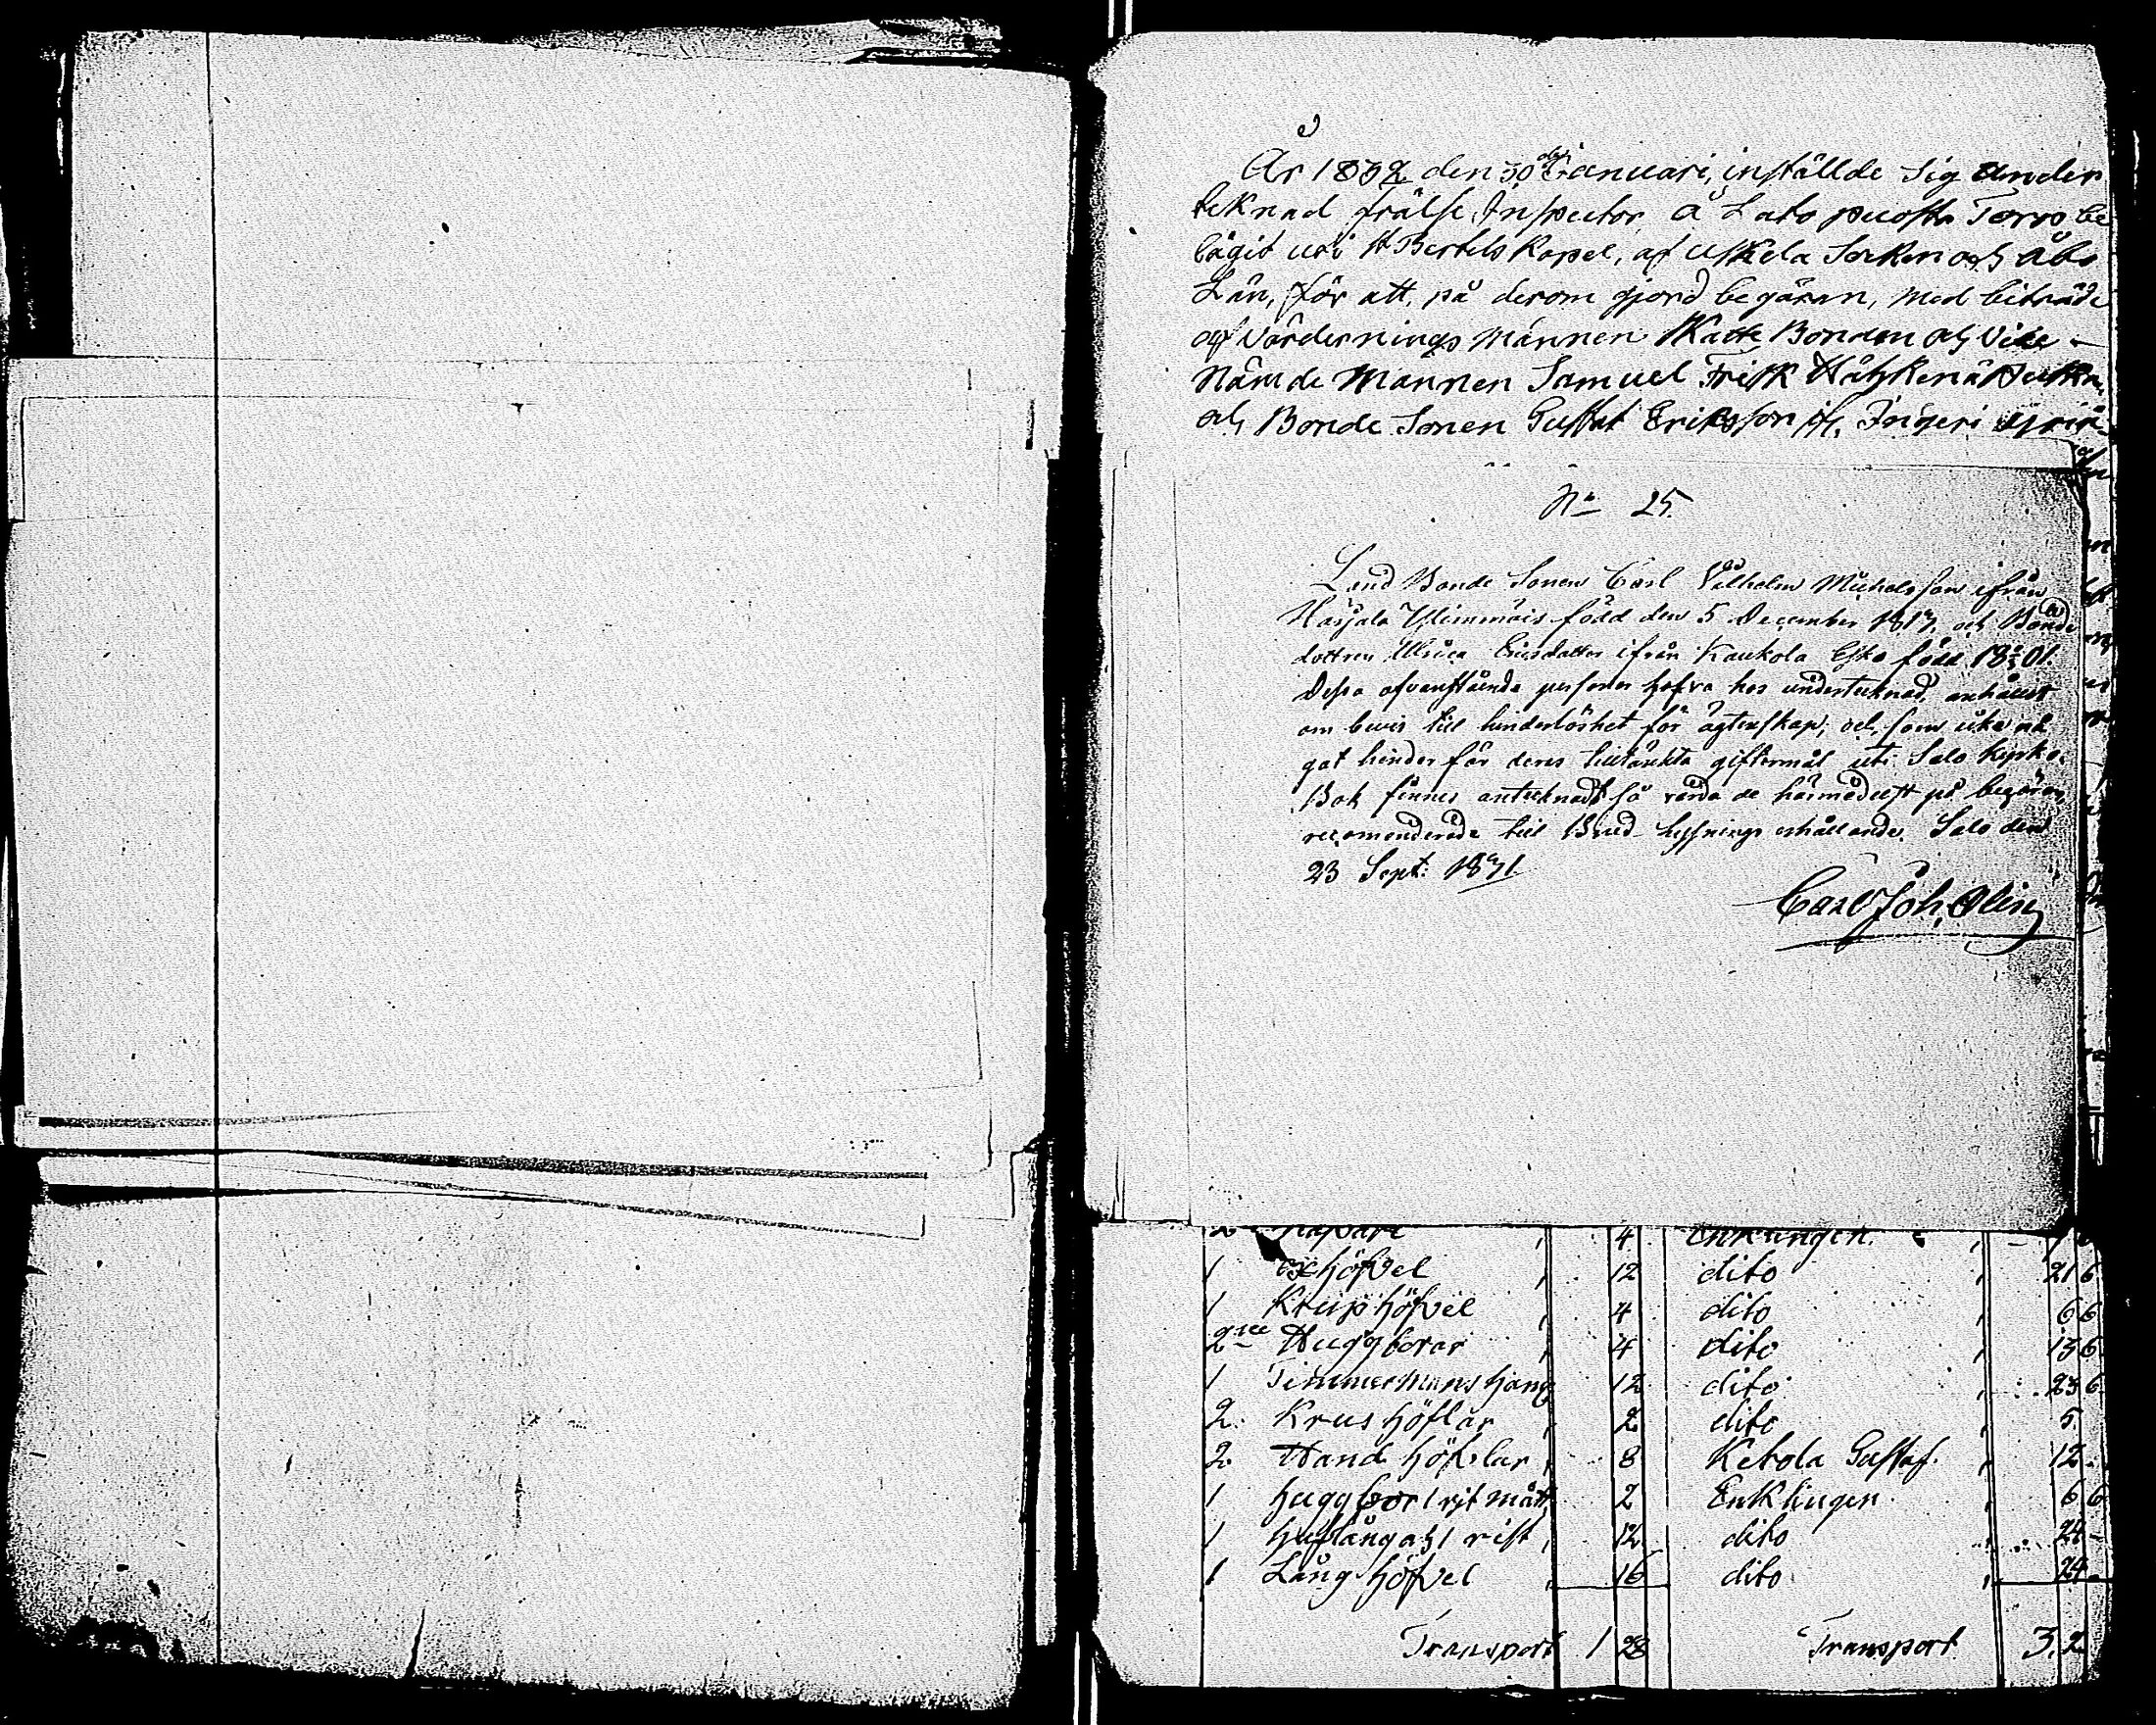 År 1832 den 30de Januari, instälde sig under
teknad frälse Inspector å Lato puosta Torp be
lägit uti St Bertels Kapel, af Uskela Socken och Åbo
Län, för att, på derom gjord begäran, med biträde
af Värdernings Männen Skatte Bonden och Vice
Nämde Mannen Samuel Frisk
och Bonde Sonen Gustaf Eriksson Ingeri
No 25.
Lend Bonde Sonen Carl Vilhelm Michelsson ifrån
Härjala Ylimmäis född den 5 December 1817, och Bonde
dottren Ulrica Ericsdotter ifrån Kaukola född
Dessa ofvanstående personer hafva hos undertecknad, anhållit
om bevis till hinderlöshet för ägtenskap, och som icke nå
got hinder för deras tilltänkta giftermål uti Salo kyrko
Bok finnes antecknadt så varda de härmedelst på begäran,
recomenderade till Brud lysnings erhållande. Salo den
23 Sept: 1841.
Carl Joh. Olin
4 Enklingen
1 höfvel 12 dito 21 6
1 höfvel 4 dito 6 6
2ne Huggborar 4 dito 13 6
1 Timmermans 12 dito 23 6
2. Krus höflar 2 dito 5
2. Hand höflar 8 Ketola Gustaf. 12
1 huggbor 1 mått 2 Enklingen 6 6
1 och 1 rist 12 dito 24 -
1 Lång höfvel 16 dito 24 -
Transport 1 28 Transport 3. 2